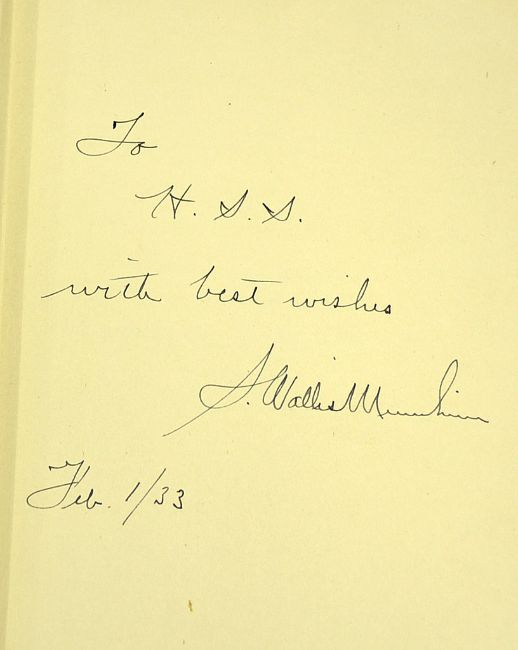 To
H. S. S.
with best wishes
S. Wallis Merrihew
Feb. 1/33